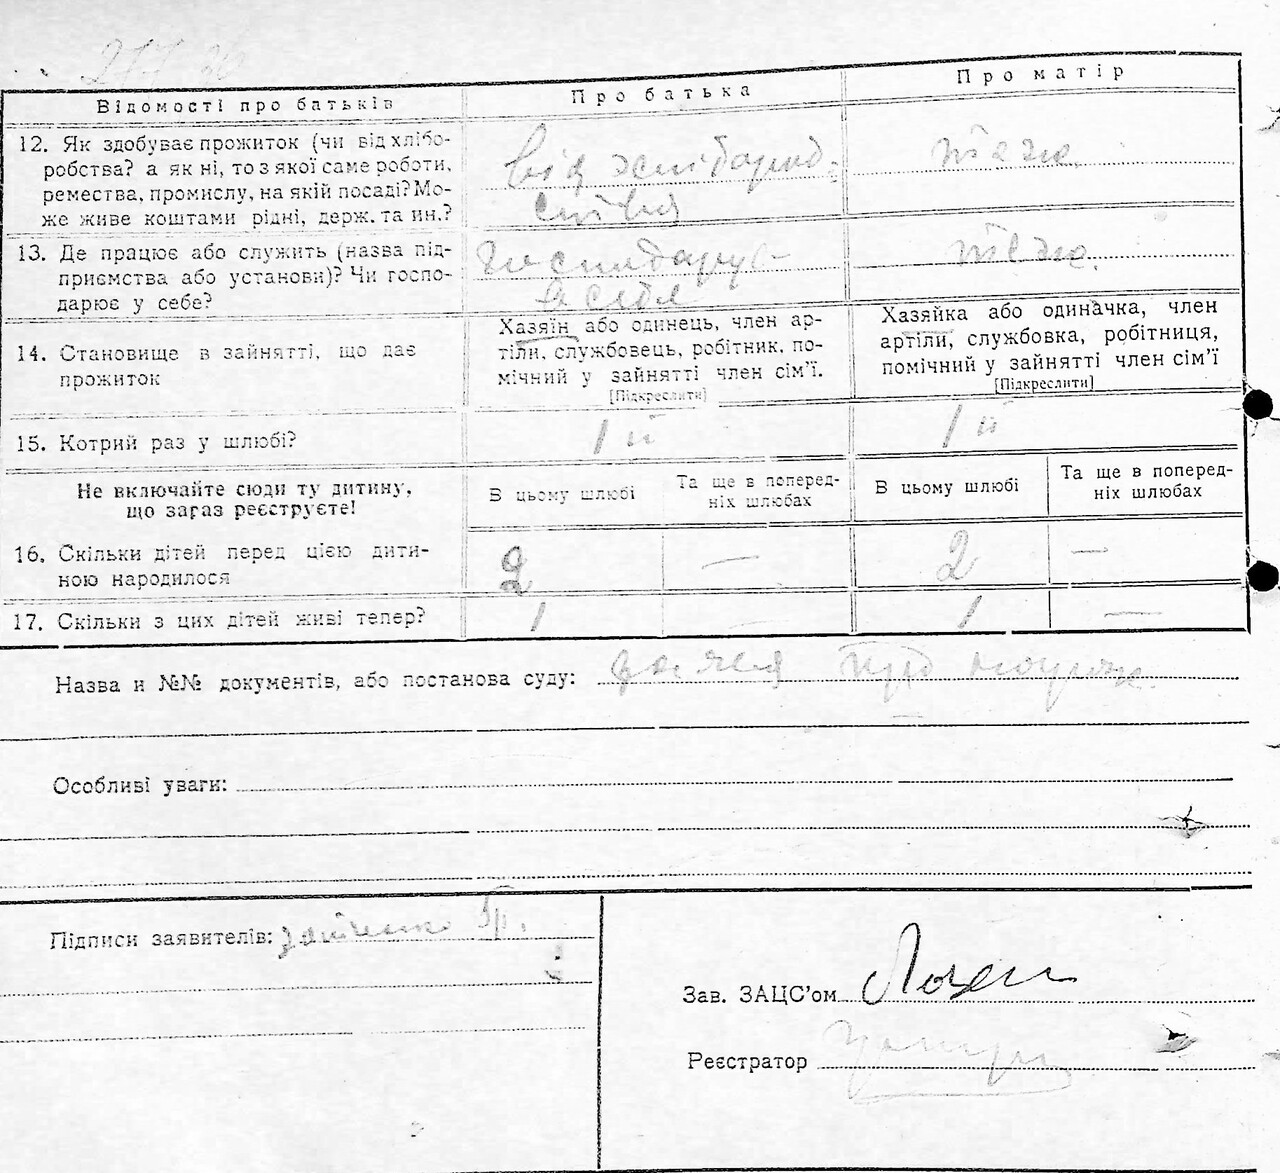 Відомості про батьків
Про батька
Про матір
12. Як здобуває прожиток (чи від хлібо-
робства? а як ні, то з якої саме роботи,
ремества, промислу, на якій посаді? Мо-
же живе коштами рідні, держ. та ин.?
від
теж
13. Де працює або служить (назва під-
приємства або установи)? Чи госпо-
дарює у себе?
в себе
теж
14. Становище в зайнятті, що дає
прожиток
Хазяїн або одинець, член ар-
тіли, службовець, робітник, по-
мічний у зайнятті член сім'ї.
[Підкреслити]
Хазяйка або одиначка, член
артіли, службовка, робітниця,
помічний у зайнятті член сім'ї
[Підкреслити]
15. Котрий раз у шлюбі?
1й
1й
Не включайте сюди ту дитину,
що зараз реєструєте!
В цьому шлюбі
Та ще в поперед-
ніх шлюбах
В цьому шлюбі
Та ще в поперед-
ніх шлюбах
16. Скільки дітей перед цією дити-
ною народилося
2
—
2
—
17. Скільки з цих дітей живі тепер?
1
—
1
—
Назва и №№ документів, або постанова суду:
Особливі уваги:
Підписи заявителів:
Зав. ЗАЦС'ом
Реєстратор